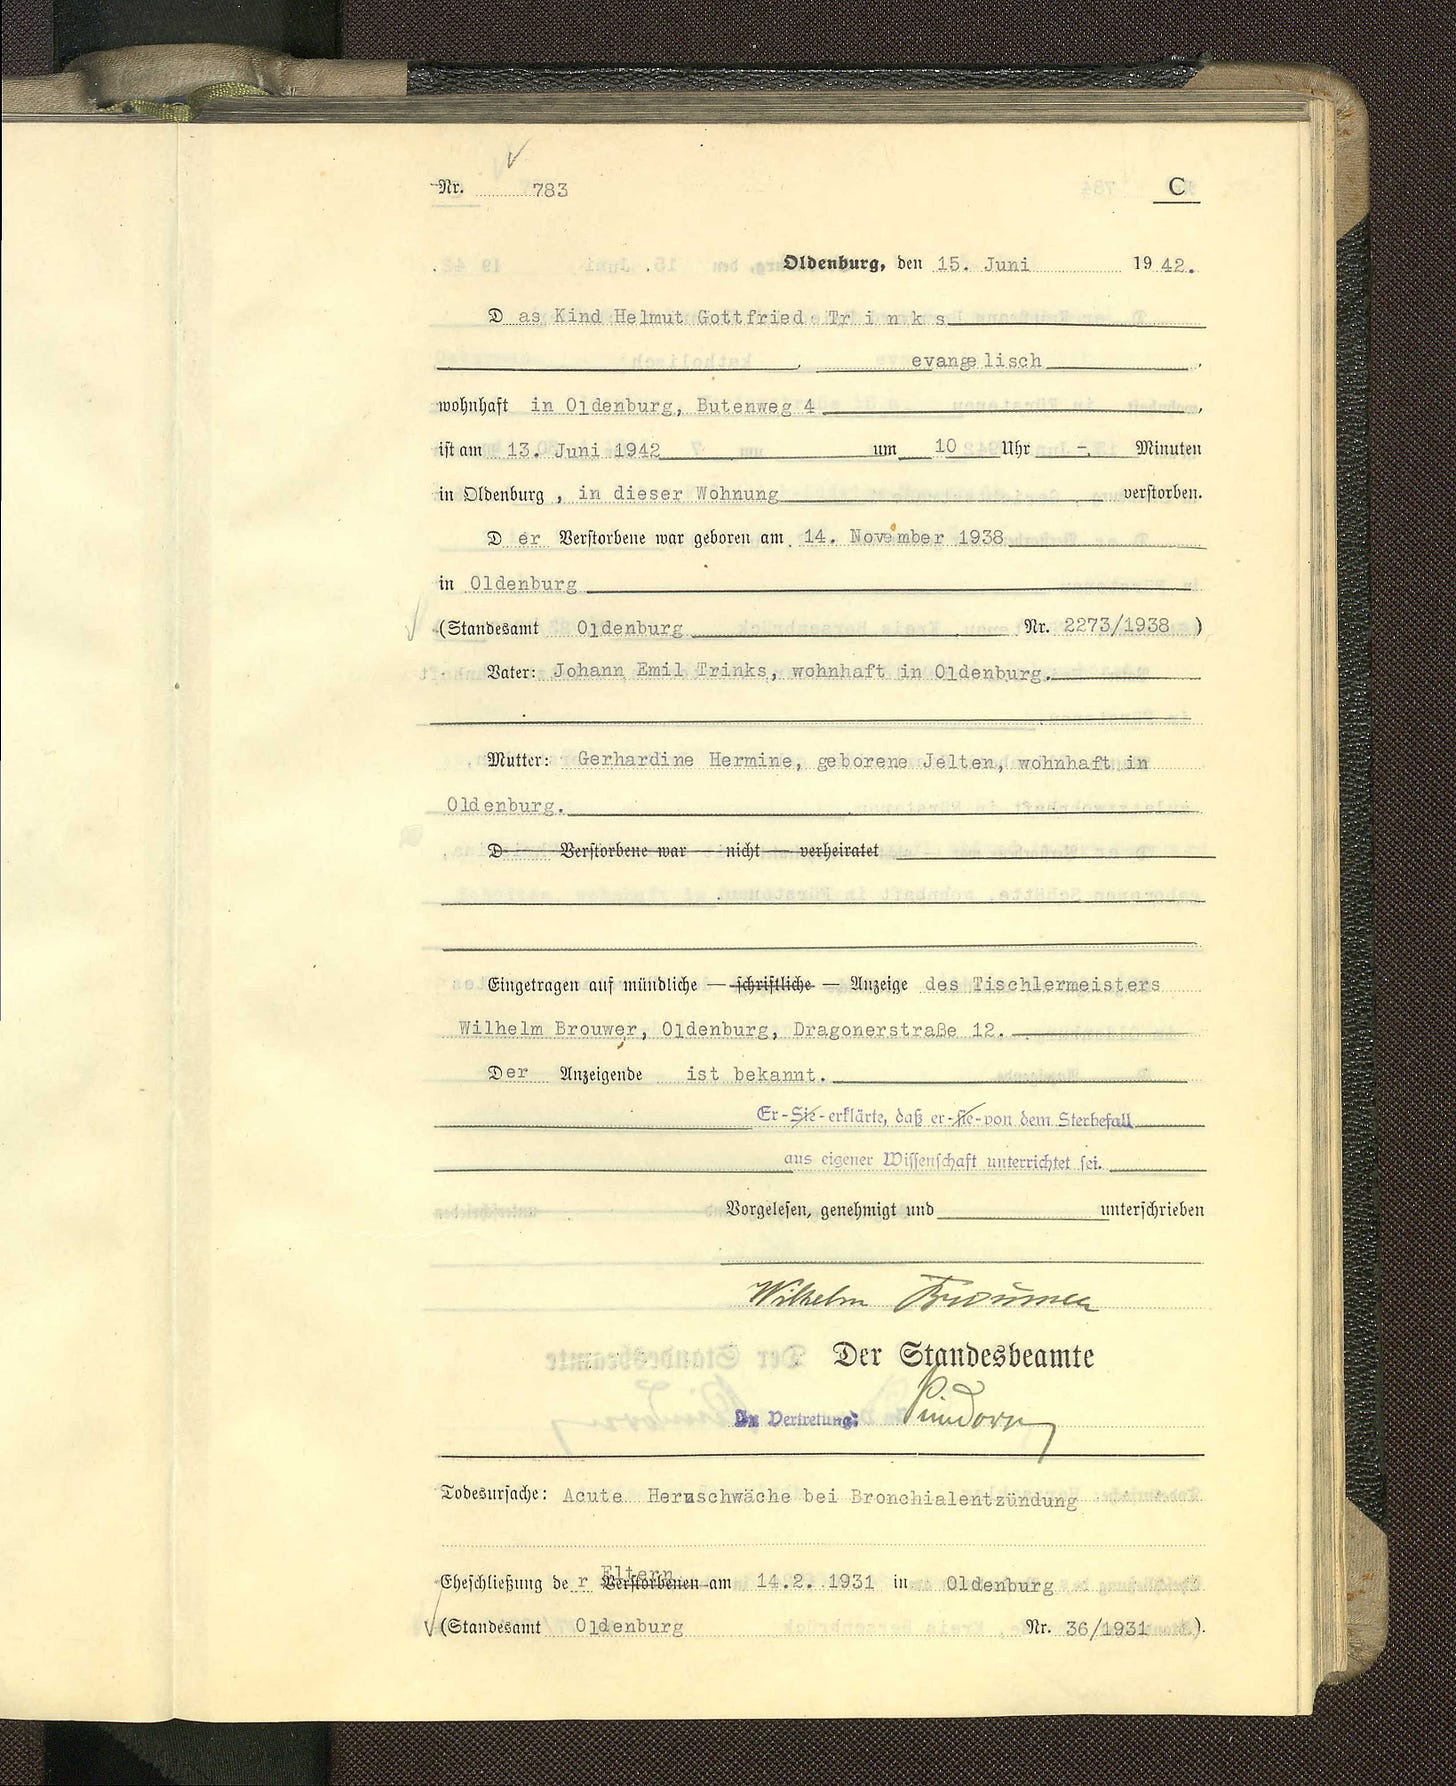 Nr. 783 C
Oldenburg, den 15. Juni 1942.
D as Kind Helmut Gottfried Tr i n k s
, evangelisch ,
wohnhaft in Oldenburg, Butenweg 4 ,
ist am 13. Juni 1942 um 10 Uhr -. Minuten
in Oldenburg , in dieser Wohnung verstorben.
D er Verstorbene war geboren am 14. November 1938
in Oldenburg
(Standesamt Oldenburg Nr. 2273/1938 )
Vater: Johann Emil Trinks, wohnhaft in Oldenburg.
Mutter: Gerhardine Hermine, geborene Jelten, wohnhaft in
Oldenburg.
D Verstorbene war — nicht — verheiratet
Eingetragen auf mündliche — schriftliche — Anzeige des Tischlermeisters
Wilhelm Brouwer, Oldenburg, Dragonerstraße 12.
Der Anzeigende ist bekannt.
Er-Sie-erklärte, daß er-sie-von dem Sterbefall
aus eigener Wissenschaft unterrichtet sei.
Vorgelesen, genehmigt und unterschrieben
Wilhelm Brouwer
Der Standesbeamte
In Vertretung:
Todesursache: Acute Herzschwäche bei Bronchialentzündung
Eltern
Eheschließung de r Verstorbenen am 14.2. 1931 in Oldenburg
(Standesamt Oldenburg Nr. 36/1931 ).